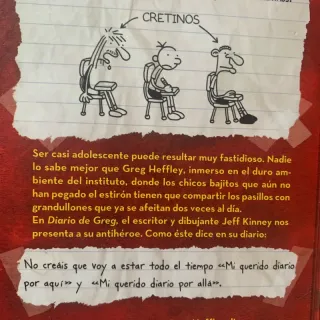 CRETINOS
Ser casi adolescente puede resultar muy fastidioso. Nadie
lo sabe mejor que Greg Heffley, inmerso en el duro am-
biente del instituto, donde los chicos bajitos que aún no
han pegado el estirón tienen que compartir los pasillos con
grandullones que ya se afeitan dos veces al día.
En Diario de Greg, el escritor y dibujante Jeff Kinney nos
presenta a su antihéroe. Como éste dice en su diario:
No creáis que voy a estar todo el tiempo «Mi querido diario
por aquí» y «Mi querido diario por allá».